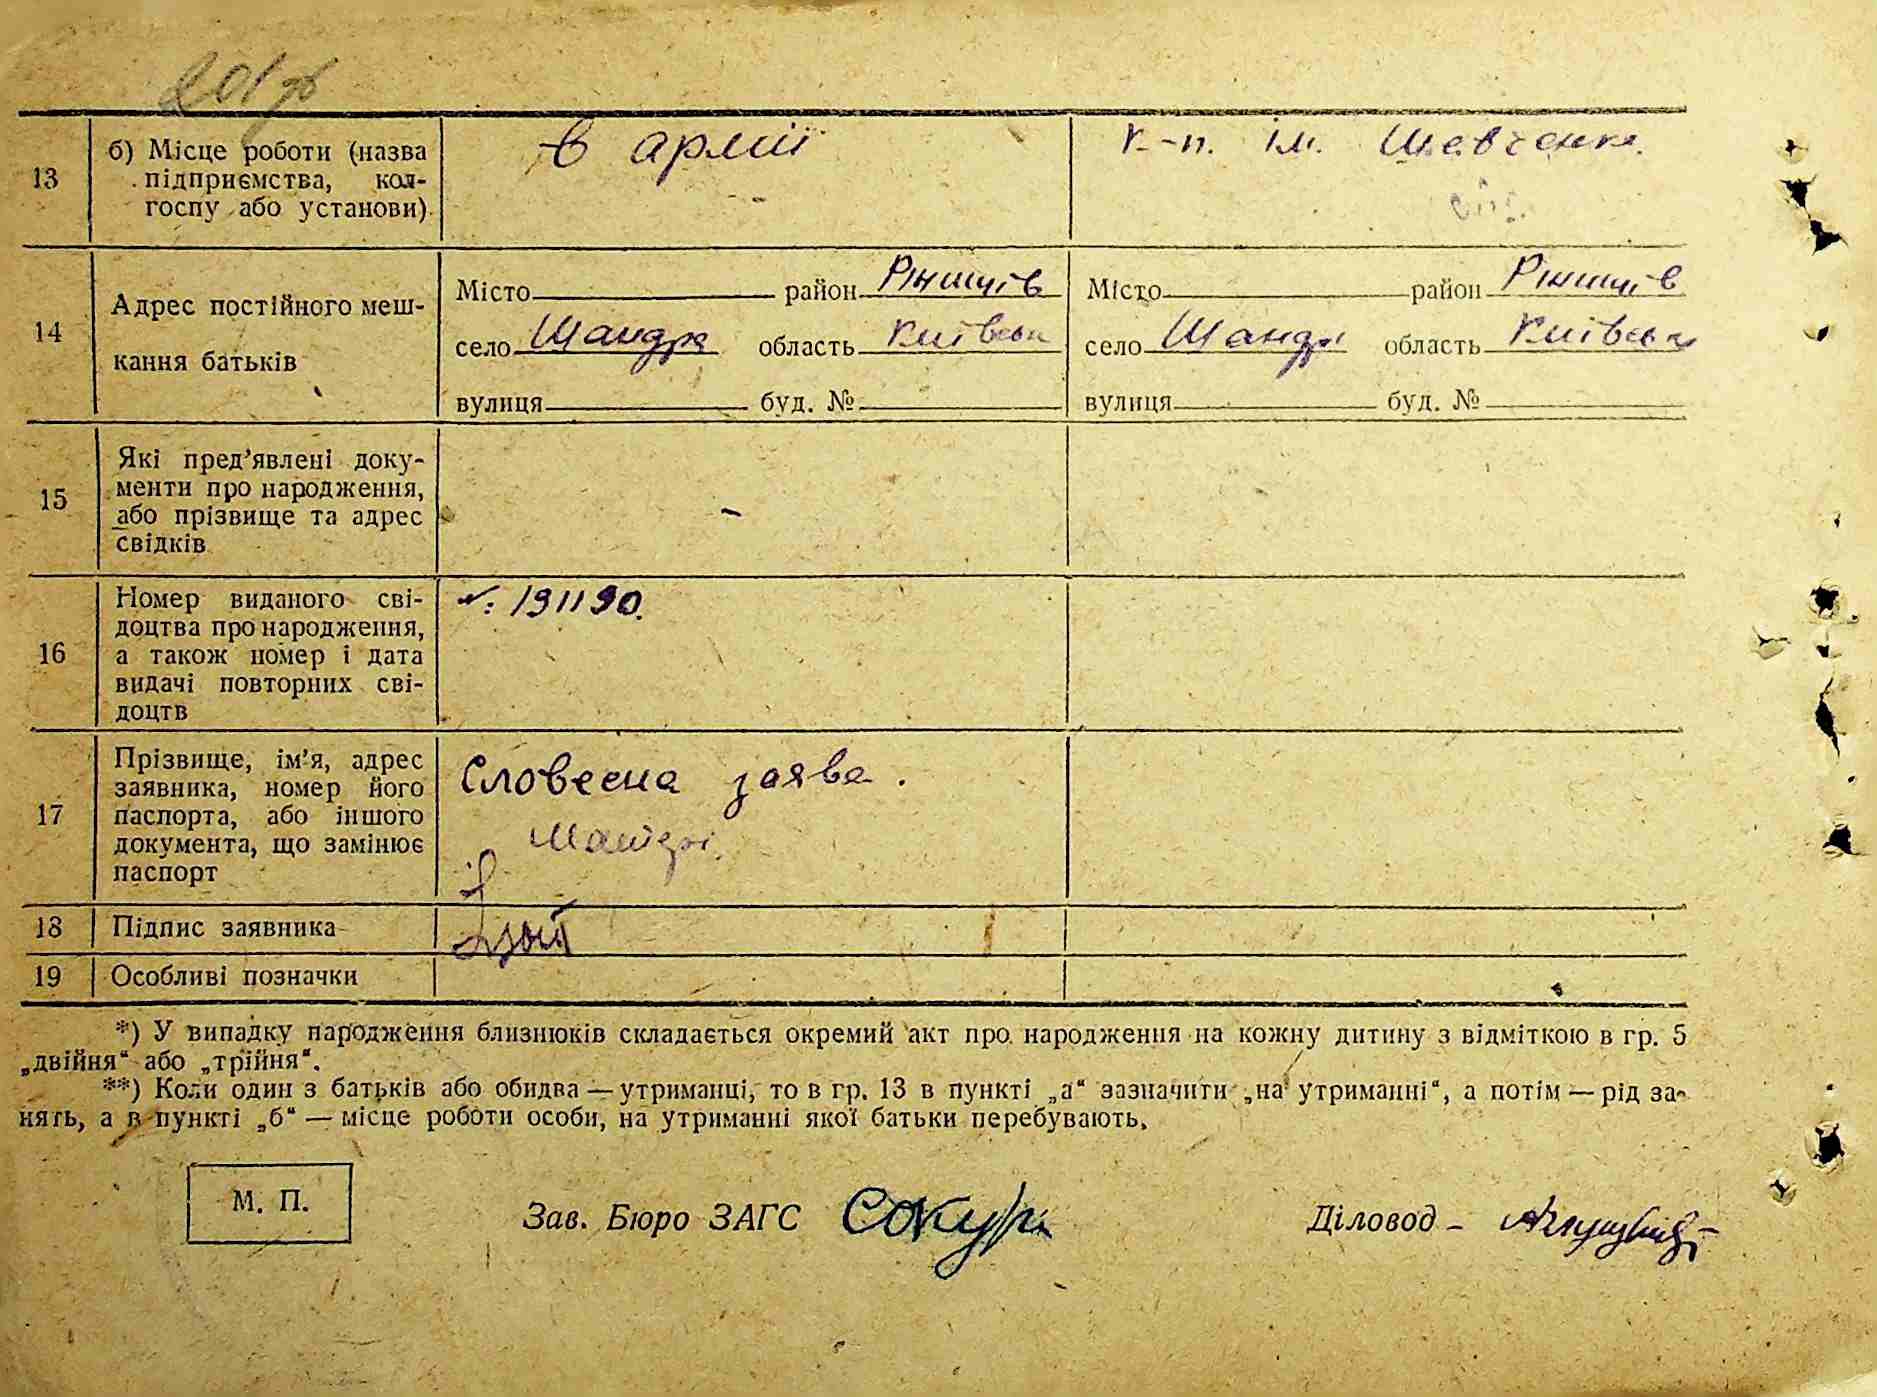 13
б) Місце роботи (назва
підприємства, кол-
госпу або установи)
в армії
к-п. ім. Шевченка.
14
Адрес постійного меш-
кання батьків
Місто район Ржищів
село Шандра область Київськ
вулиця буд. №
Місто район Ржищів
село Шандр область Київськ
вулиця буд. №
15
Які пред’явлені доку-
менти про народження,
або прізвище та адрес
свідків
16
Номер виданого сві-
доцтва про народження,
а також номер і дата
видачі повторних сві-
доцтв
№: 191190.
17
Прізвище, ім’я, адрес
заявника, номер його
паспорта, або іншого
документа, що замінює
паспорт
Словесна заява.
Матері.
18
Підпис заявника
19
Особливі позначки
*) У випадку народження близнюків складається окремий акт про народження на кожну дитину з відміткою в гр. 5
„двійня“ або „трійня“.
**) Коли один з батьків або обидва — утриманці, то в гр. 13 в пункті „а“ зазначити „на утриманні“, а потім — рід за-
нять, а в пункті „б“ — місце роботи особи, на утриманні якої батьки перебувають.
М. П.
Зав. Бюро ЗАГС Сокур
Діловод